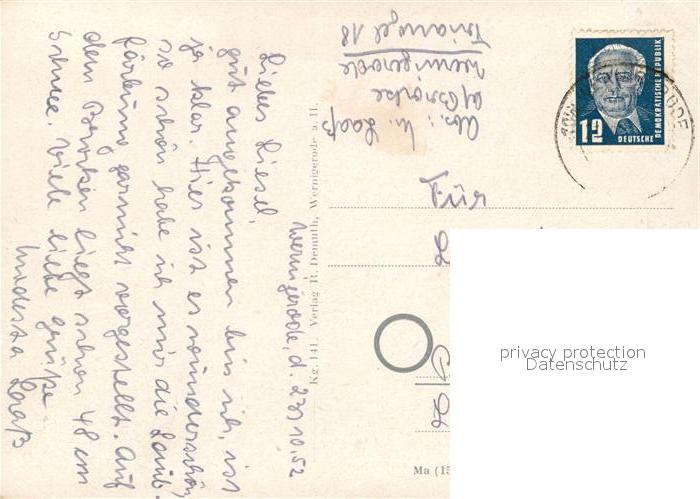 Wernigerode, d. 23.10.52
Liebes Liesel,
gut angekommen bin ich, ist
ja klar. Hier ist es wunderschön,
so schön habe ich mir die Laub-
färbung garnicht vorgestellt. Auf
dem Brocken liegt schon 48 cm
Schnee. Viele liebe Grüße
Laaß
Abs.: M. Laaß
Wernigerode
Triangel 18
Kg. 141. Verlag R. Demuth, Wernigerode a. H.
12
DEUTSCHE
DEMOKRATISCHE REPUBLIK
Für
Ma (15
privacy protection
Datenschutz